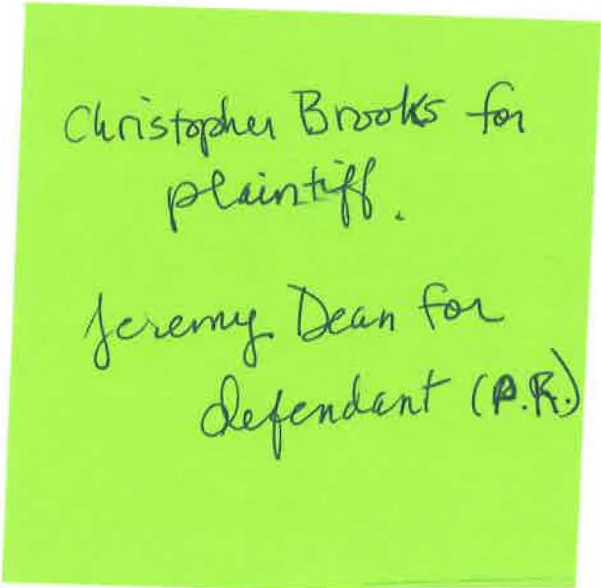 Christopher Brooks for
plaintiff.
Jeremy Dean for
defendant (P.R.)